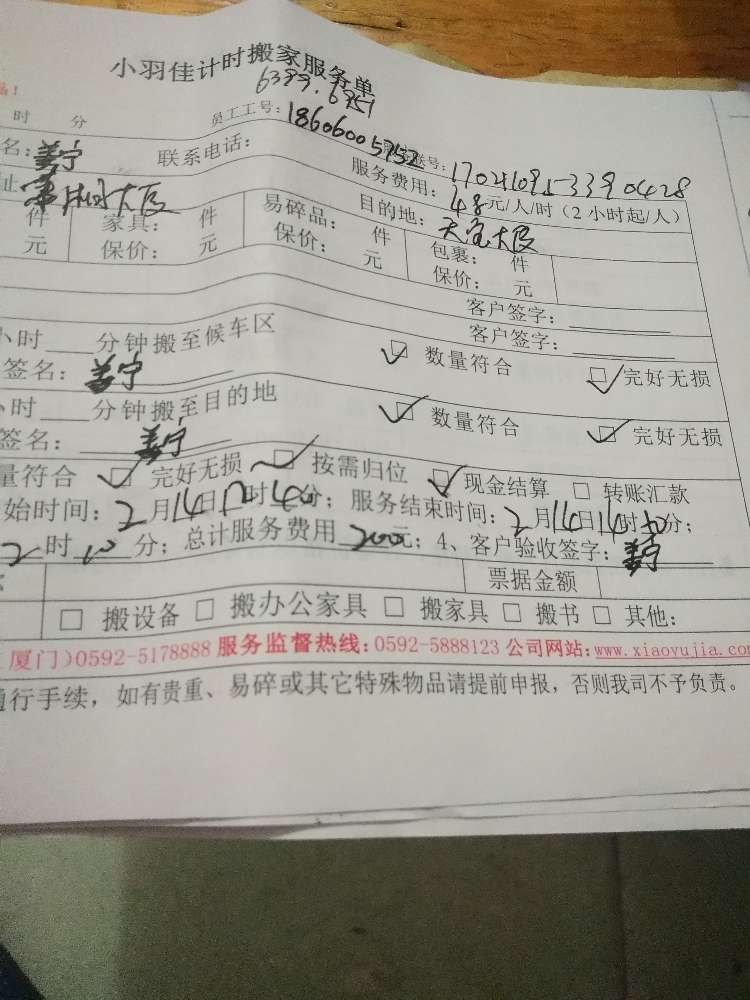 小羽佳计时搬家服务单
6399.6951
时 分 员工工号:
名: 姜宁 联系电话: 18606005752 号: 170210953390428
址 大厦 服务费用: 48元/人/时(2小时起/人)
件 家具: 件 易碎品: 件 目的地: 天宝大厦
元 保价: 元 保价: 元 包裹: 件
保价: 元
客户签字:
小时 分钟搬至候车区 客户签字:
签名: 姜宁 数量符合 完好无损
小时 分钟搬至目的地 数量符合 完好无损
签名: 姜宁
量符合 完好无损 按需归位 现金结算 转账汇款
始时间: 2月14日 时 分; 服务结束时间: 2月14日14时50分;
2时10分; 总计服务费用 2000元; 4、客户验收签字: 姜宁
票据金额
搬设备 搬办公家具 搬家具 搬书 其他:
(厦门)0592-5178888 服务监督热线:0592-5888123 公司网站:www.xiaoyujia.com
通行手续,如有贵重、易碎或其它特殊物品请提前申报,否则我司不予负责。